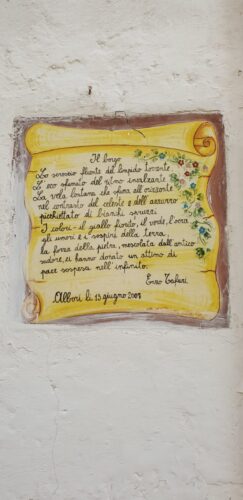 Il borgo
Lo scroscio fluente del limpido torrente
L'eco sfumato del ritmo incalzante
La vela lontana che sfiora all'orizzonte
nel contrasto del celeste e dell'azzurro
picchiettato di bianchi spruzzi
I colori - il giallo fiordo, il verde, l'ocra
gli umori e i sospiri della terra
la forza della pietra, mescolata dall'antico
sudore, ci hanno donato un attimo di
pace sospesa nell'infinito.
Enzo Tafuri
Albori li, 13 giugno 2008